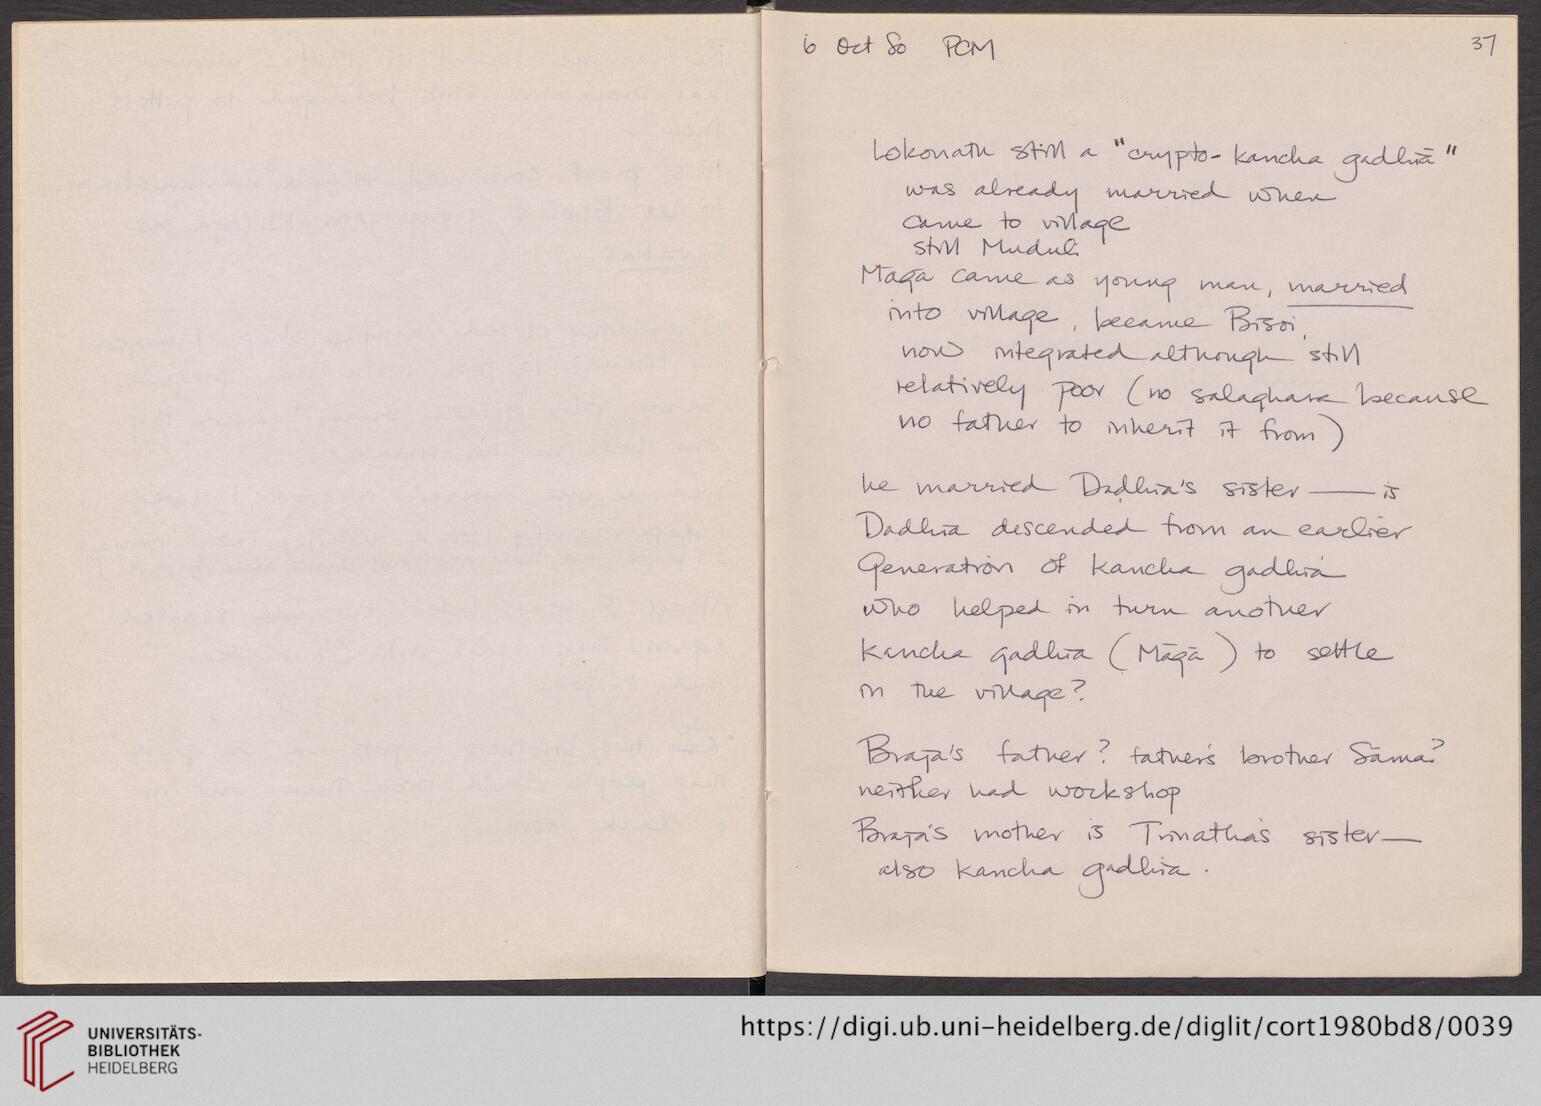 6 Oct 80 PCM
37
Lokonath still a "crypto-kancha gadhiā"
was already married when
came to village
still Muduli
Māgā came as young man, married
into village, became Bisoi,
now integrated although still
relatively poor (no salaghara because
no father to inherit it from)
he married Daḍhia's sister — is
Dadhia descended from an earlier
Generation of kancha gadhiā
who helped in turn another
kancha gadhia (Māgā) to settle
in the village?
Braja's father? father's brother Sāma?
neither had workshop
Braja's mother is Trinatha's sister—
also kancha gadhia.
UNIVERSITÄTS-
BIBLIOTHEK
HEIDELBERG
https://digi.ub.uni-heidelberg.de/diglit/cort1980bd8/0039